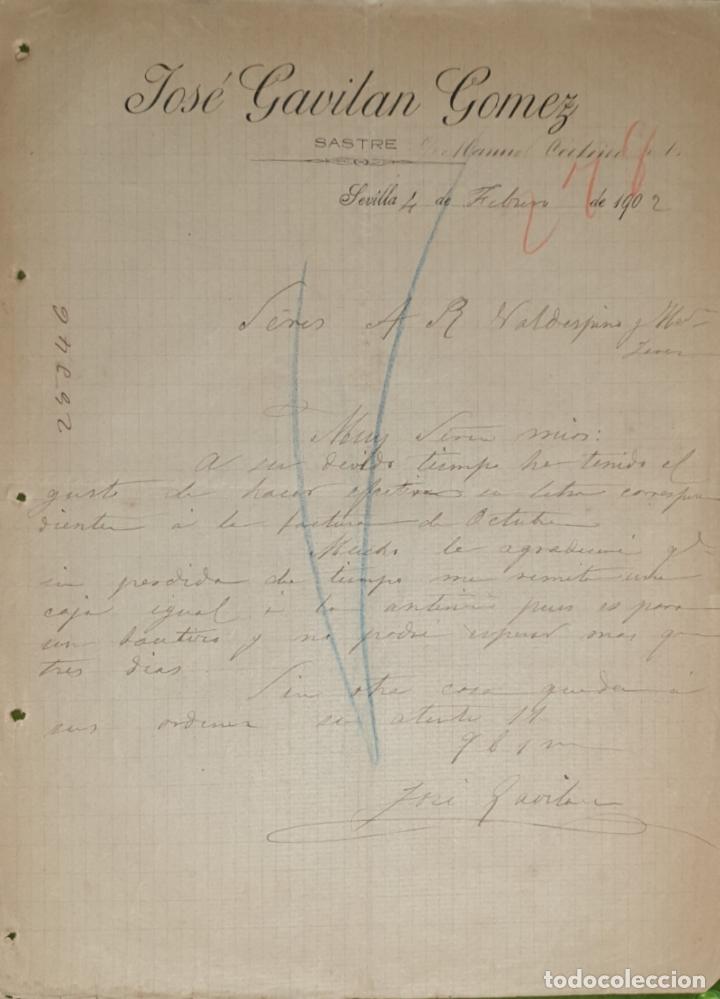 José Gavilan Gomez
SASTRE Manuel Cortina 1.
Sevilla 4 de Febrero de 1902
Sēres A R Valdespino y Hno
Jerez
25946
Muy Sēres mios:
A su devido tiempo he tenido el
gusto de hacer efectiva su letra correspon
diente á la factura de Octubre
Mucho le agradeceré qe
sin perdida de tiempo me remita una
caja igual á la anterior pues es para
un bautizo y no podré esperar mas que
tres dias
Sin otra cosa queda á
sus ordenes su atento
q b s m
José Gavilan
todocoleccion